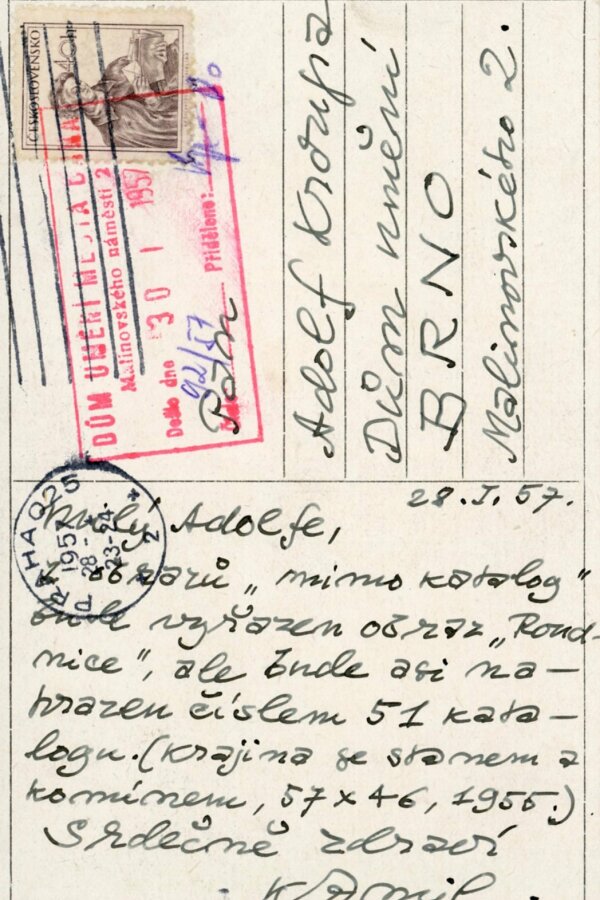 ČESKOSLOVENSKO
40h
DŮM UMĚNÍ MĚSTA BRNA
Malinovského náměstí 2
Došlo dne 30 I 1957
92/57
Přiděleno:
Adolf Kroupa
Dům umění
BRNO
Malinovského 2.
PRAHA 025
1957
28-
23-24
2
28.I.57.
Milý Adolfe,
z obrazů „mimo katalog“
bude vyřazen obraz „Roud-
nice“, ale bude asi na-
hrazen číslem 51 kata-
logu. (Krajina se stanem a
komínem, 57x46, 1955.)
Srdečně zdraví
Kamil